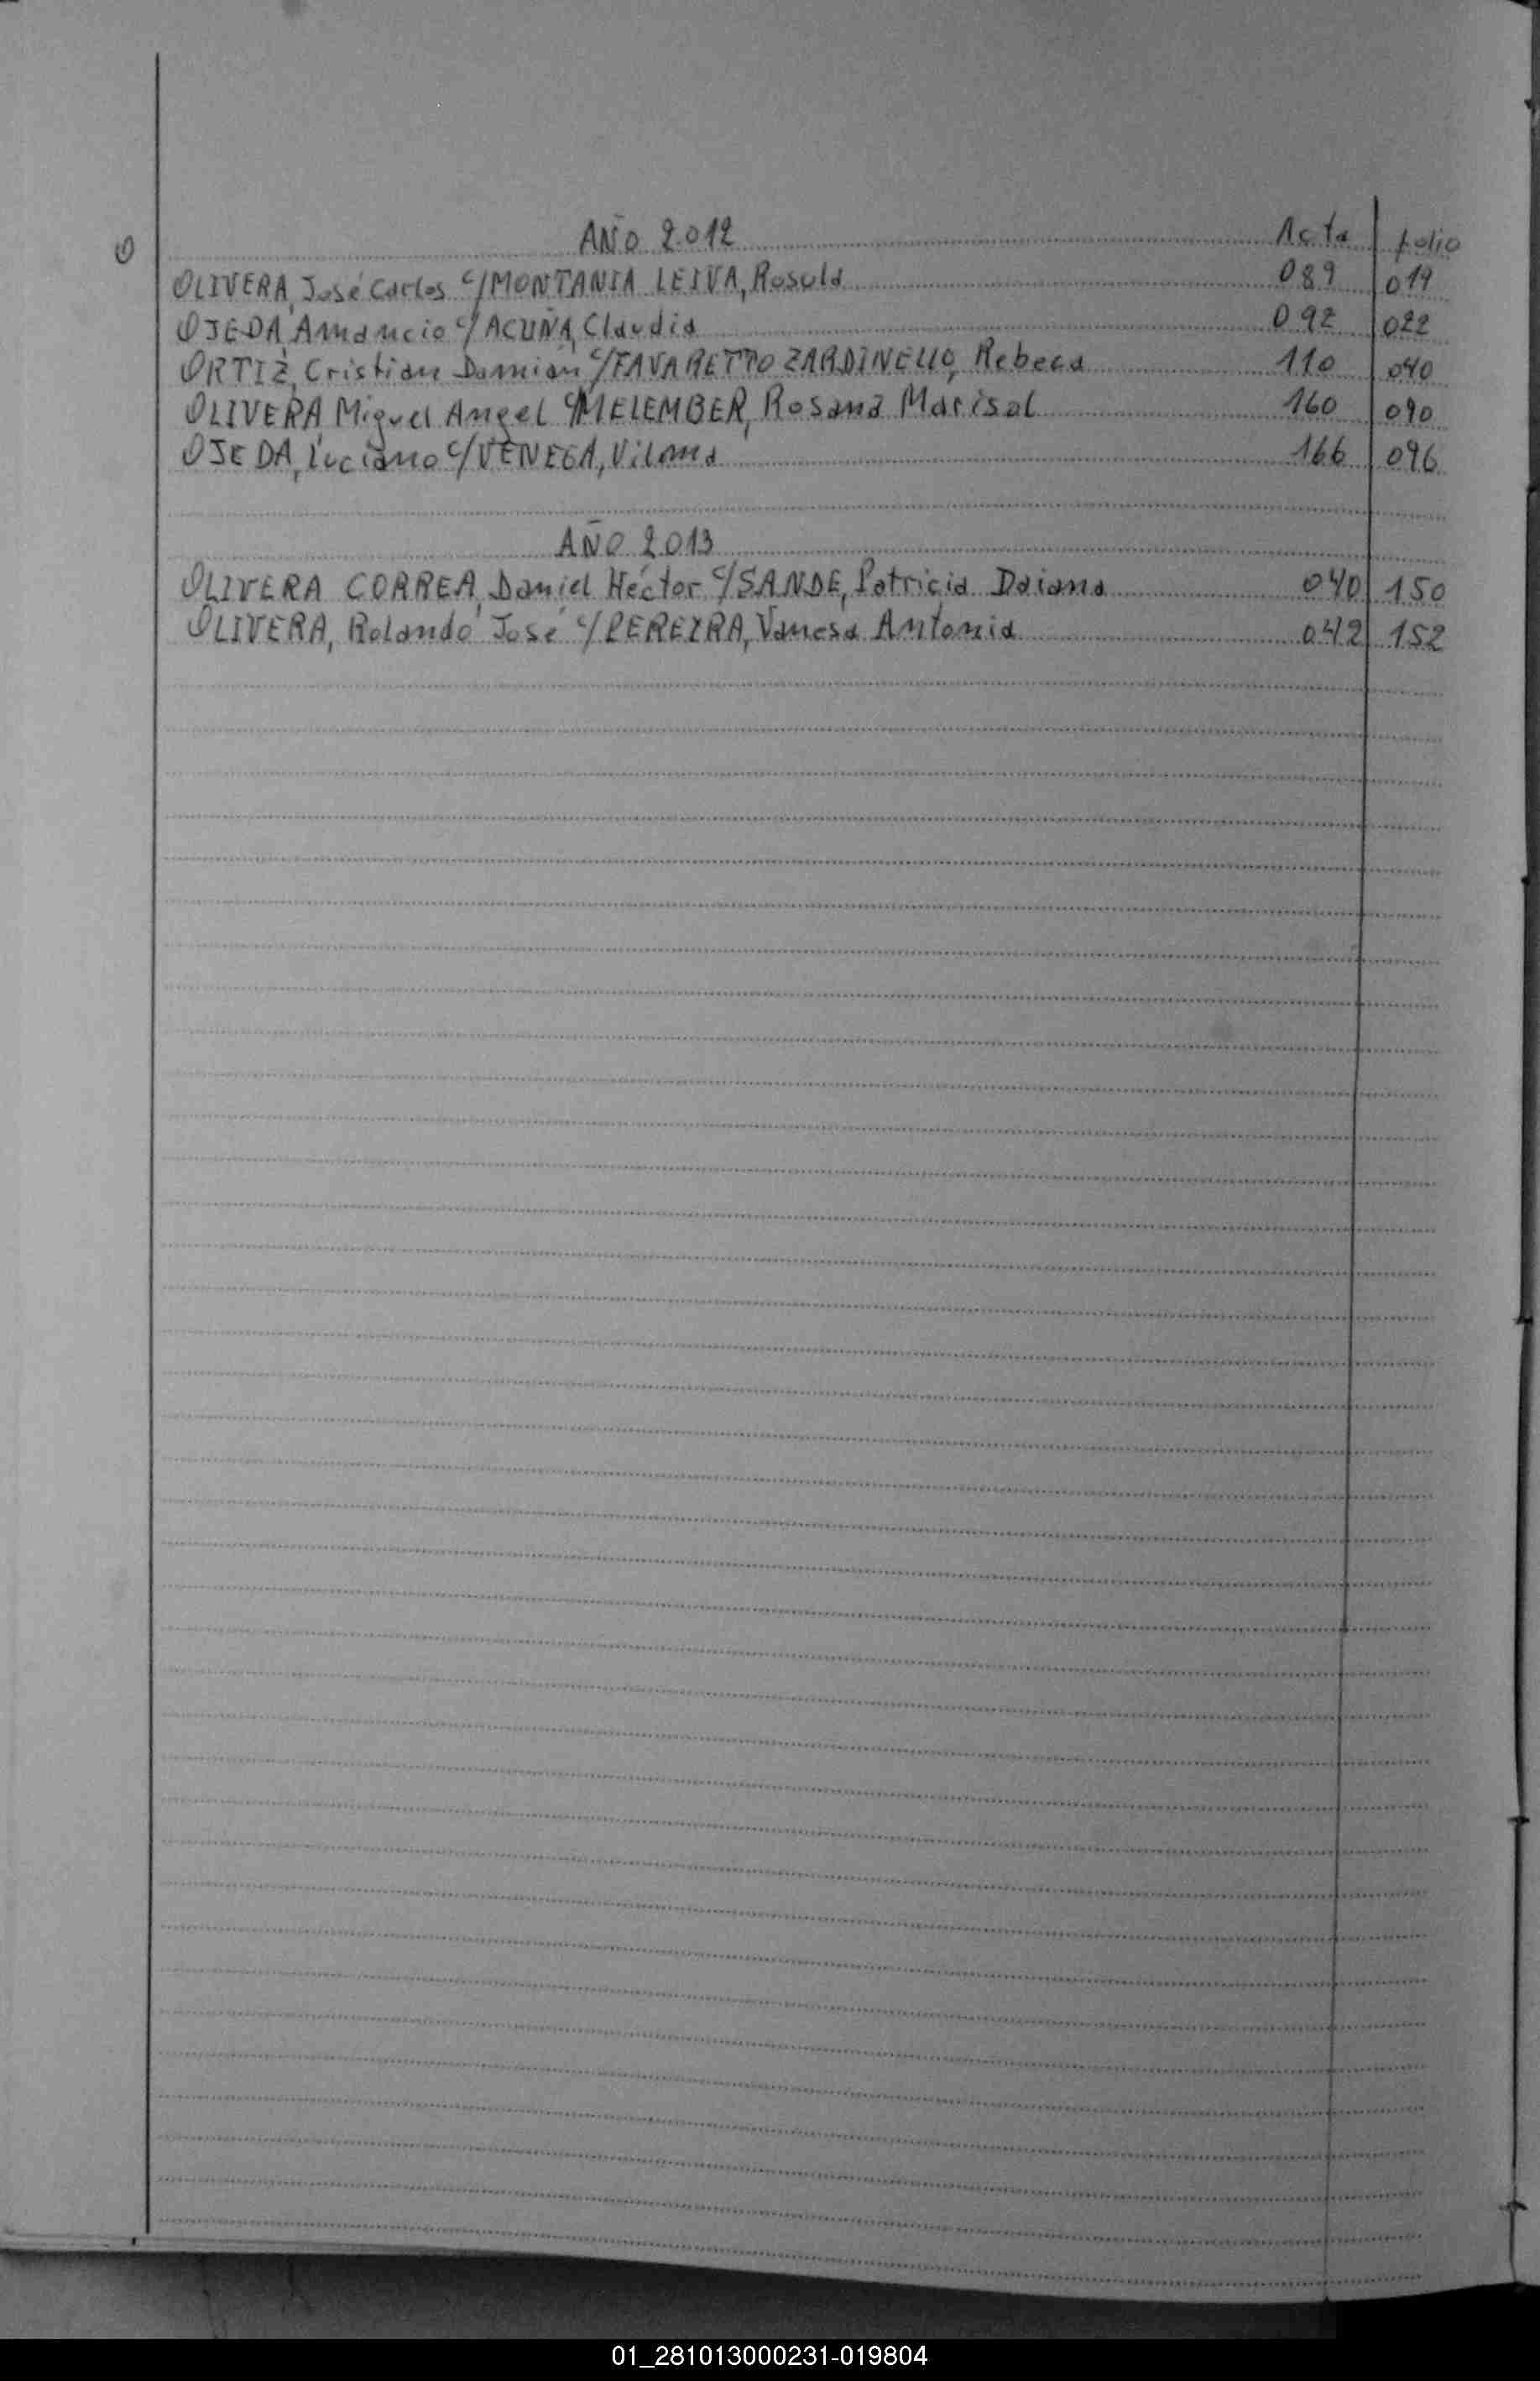 O
AÑO 2012 Acta folio
OLIVERA, José Carlos c/MONTANIA LEIVA, Rosula 089 019
OJEDA, Amancio c/ACUÑA, Claudia 092 022
ORTIZ, Cristian Damián c/FAVARETTO ZARDINELLO, Rebeca 110 040
OLIVERA Miguel Angel c/MELEMBER, Rosana Marisol 160 090
OJEDA, Luciano c/VENEGA, Vilma 166 096
AÑO 2013
OLIVERA CORREA, Daniel Héctor c/SANDE, Patricia Daiana 040 150
OLIVERA, Rolando José c/PEREIRA, Vanesa Antonia 042 152
01_281013000231-019804